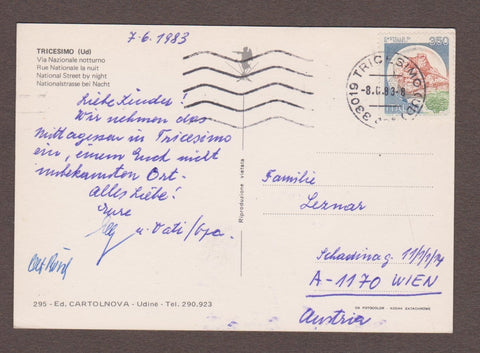 7-6.1983
TRICESIMO (Ud)
Via Nazionale notturno
Rue Nationale la nuit
National Street by night
Nationalstrasse bei Nacht
Liebe Kinder!
Wir nehmen das
Mittagessen in Tricesimo
ein, einem Euch nicht
unbekannten Ort.
Alles Liebe!
Eure
u. Vati/Opa
295 - Ed. CARTOLNOVA - Udine - Tel. 290.923
Riproduzione vietata
350
33019 TRICESIMO (UD)
-8.6.83-8
Familie
Leznar
11/9/1/14
A-1170 WIEN
Austria